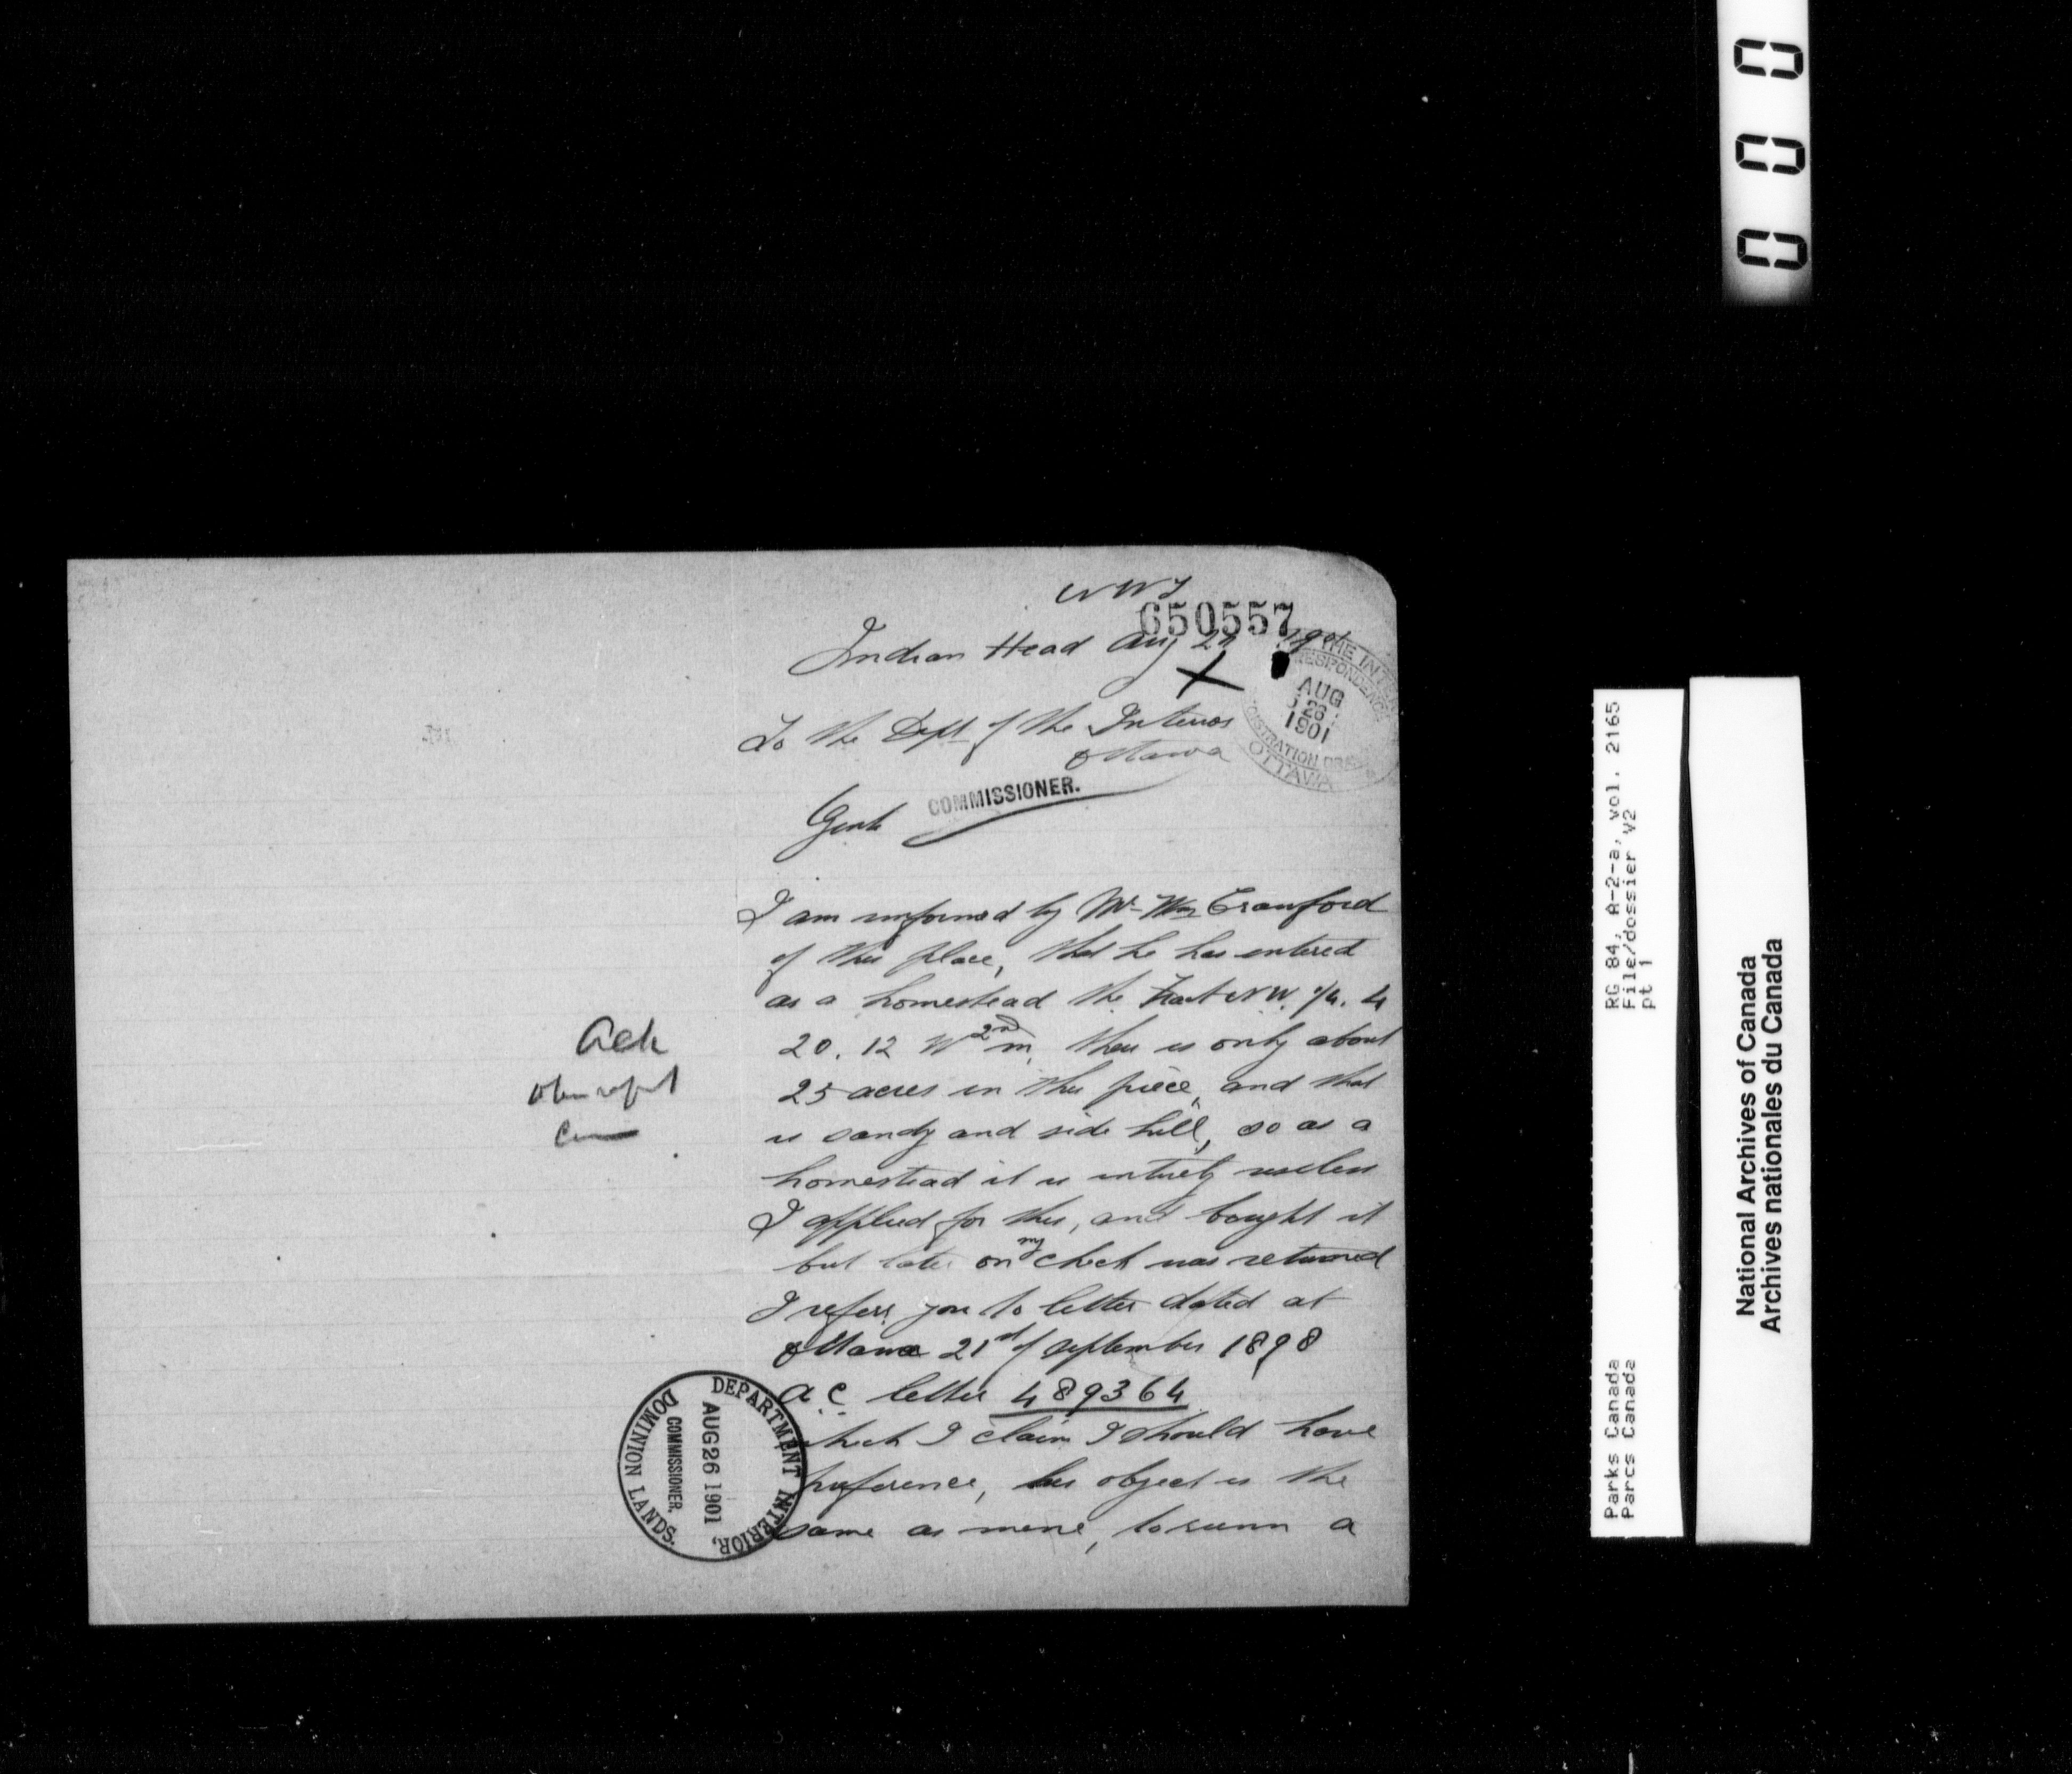 NWT
650557
Indian Head Aug 22 1901
THE INTE
RESPONDENCE
AUG
26
1901
ISTRATION BRA
OTTAWA
To the Dept of the Interior
Ottawa
COMMISSIONER.
Gents
I am informed by Mr Wm Crawford
of this place, that he has entered
as a homestead the Fract N.W. 1/4. 4
20. 12 W 2nd m, there is only about
25 acres in this piece, and that
is sandy and side hill, so as a
homestead it is entirely useless
I applied for this, and bought it
but later on my check was returned
I referr you to letter dated at
Ottawa 21st of September 1898
a.c. letter 489364
which I claim I should have
preference, his object is the
same as mine, to runn a
Ack
DEPARTMENT INTERIOR,
AUG 26 1901
COMMISSIONER.
DOMINION LANDS.
000
RG 84, A-2-a, vol. 2165
File/dossier V2
pt 1
Parks Canada
Parcs Canada
National Archives of Canada
Archives nationales du Canada